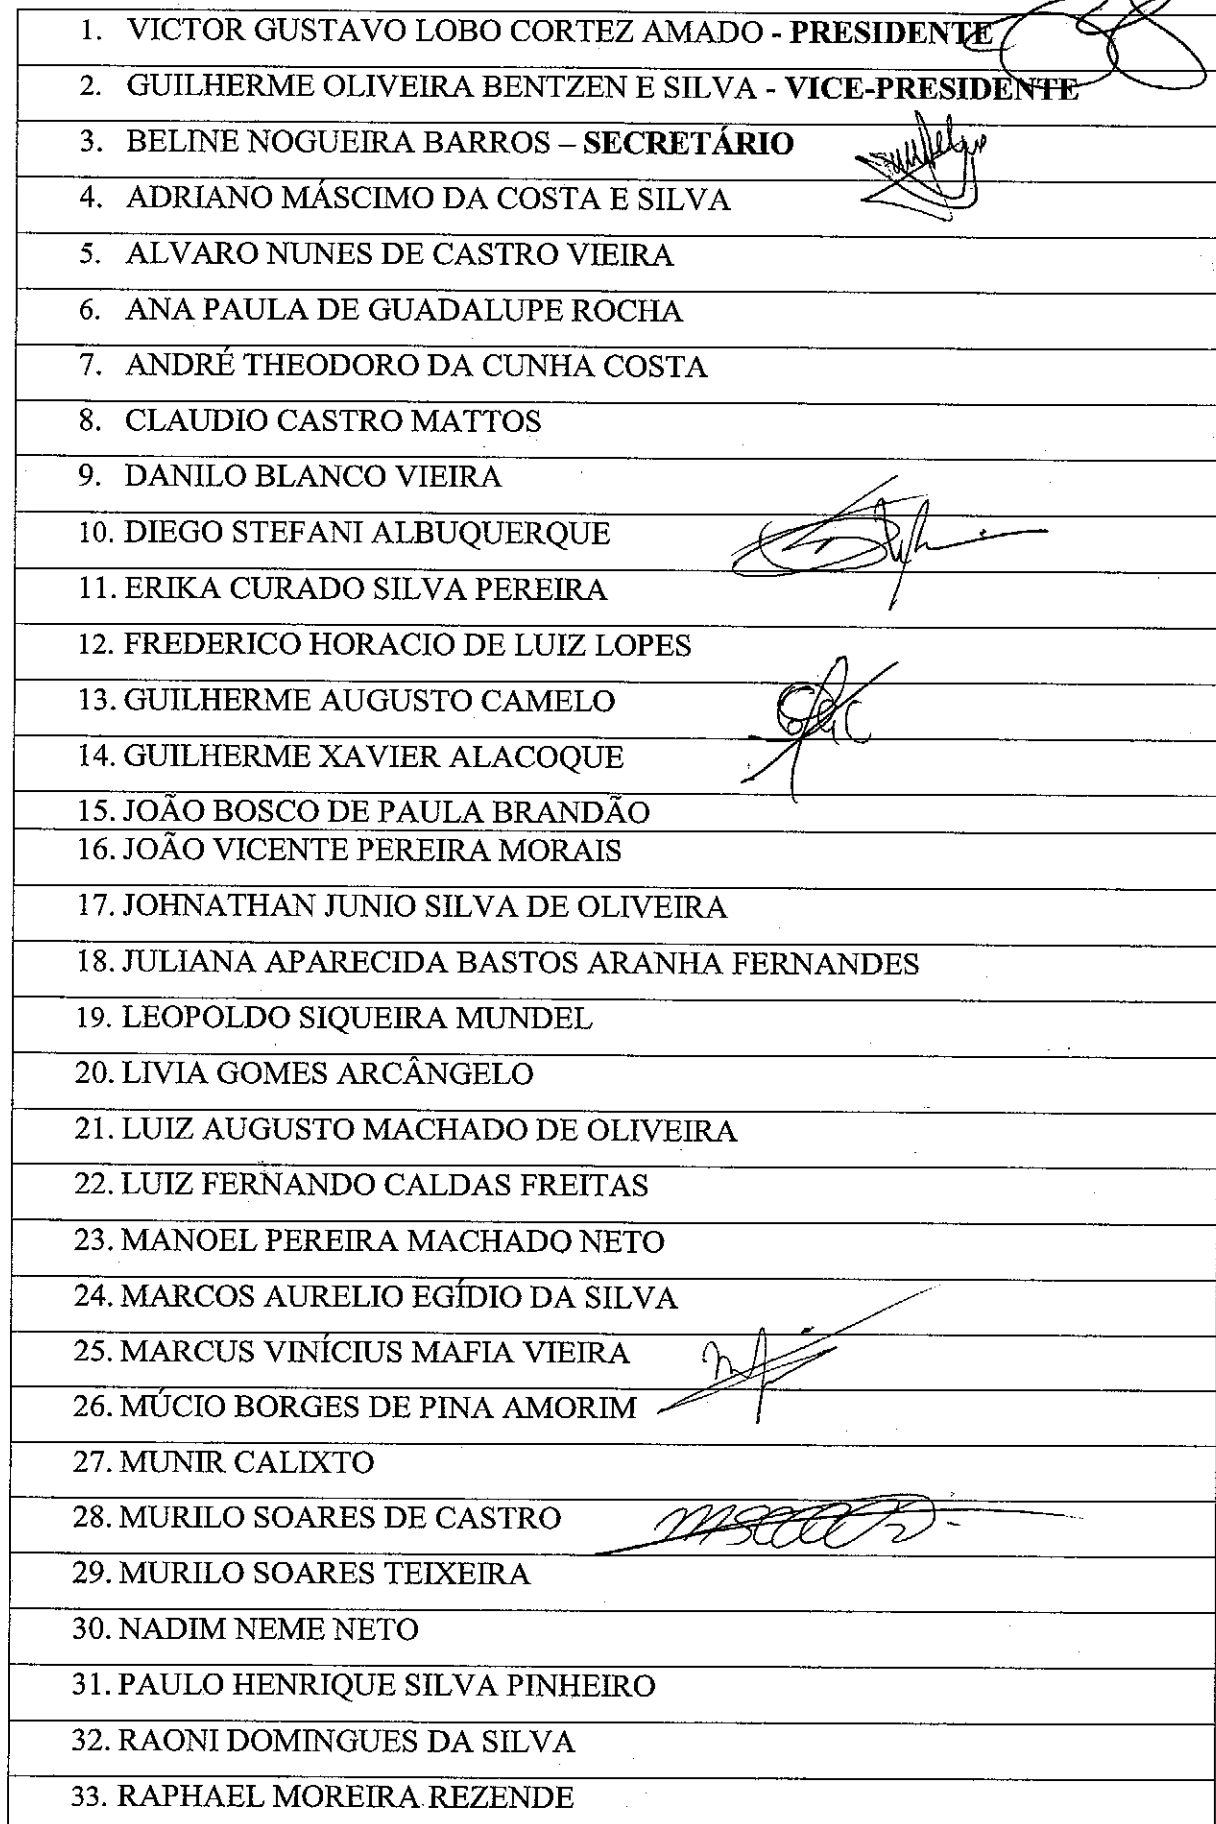 1. VICTOR GUSTAVO LOBO CORTEZ AMADO - PRESIDENTE
2. GUILHERME OLIVEIRA BENTZEN E SILVA - VICE-PRESIDENTE
3. BELINE NOGUEIRA BARROS – SECRETÁRIO
4. ADRIANO MÁSCIMO DA COSTA E SILVA
5. ALVARO NUNES DE CASTRO VIEIRA
6. ANA PAULA DE GUADALUPE ROCHA
7. ANDRÉ THEODORO DA CUNHA COSTA
8. CLAUDIO CASTRO MATTOS
9. DANILO BLANCO VIEIRA
10. DIEGO STEFANI ALBUQUERQUE
11. ERIKA CURADO SILVA PEREIRA
12. FREDERICO HORACIO DE LUIZ LOPES
13. GUILHERME AUGUSTO CAMELO
14. GUILHERME XAVIER ALACOQUE
15. JOÃO BOSCO DE PAULA BRANDÃO
16. JOÃO VICENTE PEREIRA MORAIS
17. JOHNATHAN JUNIO SILVA DE OLIVEIRA
18. JULIANA APARECIDA BASTOS ARANHA FERNANDES
19. LEOPOLDO SIQUEIRA MUNDEL
20. LIVIA GOMES ARCÂNGELO
21. LUIZ AUGUSTO MACHADO DE OLIVEIRA
22. LUIZ FERNANDO CALDAS FREITAS
23. MANOEL PEREIRA MACHADO NETO
24. MARCOS AURELIO EGÍDIO DA SILVA
25. MARCUS VINÍCIUS MAFIA VIEIRA
26. MÚCIO BORGES DE PINA AMORIM
27. MUNIR CALIXTO
28. MURILO SOARES DE CASTRO
29. MURILO SOARES TEIXEIRA
30. NADIM NEME NETO
31. PAULO HENRIQUE SILVA PINHEIRO
32. RAONI DOMINGUES DA SILVA
33. RAPHAEL MOREIRA REZENDE